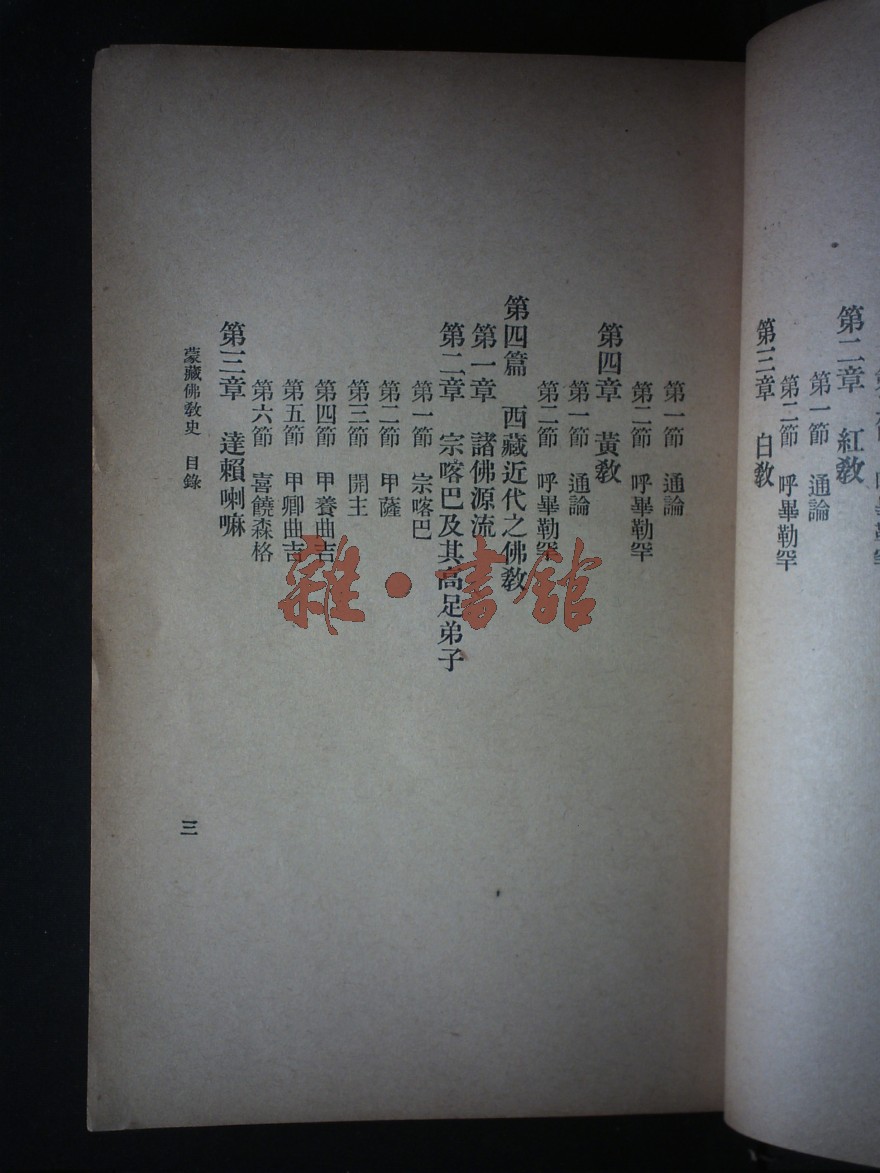 第二章 紅教
第一節 通論
第二節 呼畢勒罕
第三章 白教
第一節 通論
第二節 呼畢勒罕
第四章 黃教
第一節 通論
第二節 呼畢勒罕
第四篇 西藏近代之佛教
第一章 諸佛源流
第二章 宗喀巴及其高足弟子
第一節 宗喀巴
第二節 甲薩
第三節 開主
第四節 甲養曲吉
第五節 甲卿曲吉
第六節 喜饒森格
第三章 達賴喇嘛
蒙藏佛教史 目錄
三
雜·書館